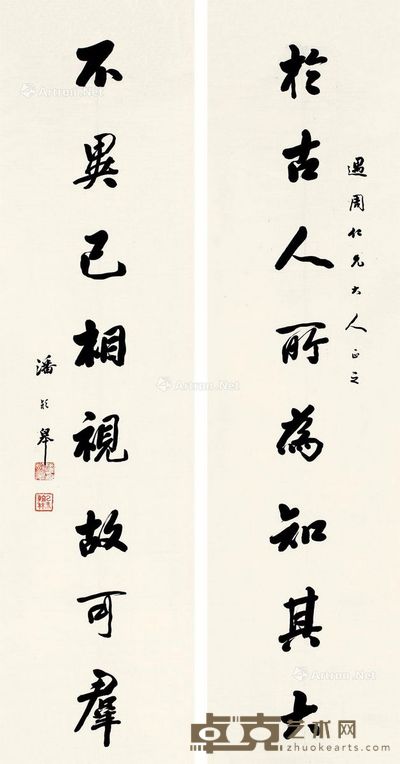 於古人所為知其大
遇周仁兄大人正之
不異己相視故可羣
潘龄皋
Artron.Net
Artron.Net
Artron.Net
Artron.Net
卓克艺术网
zhuokearts.com